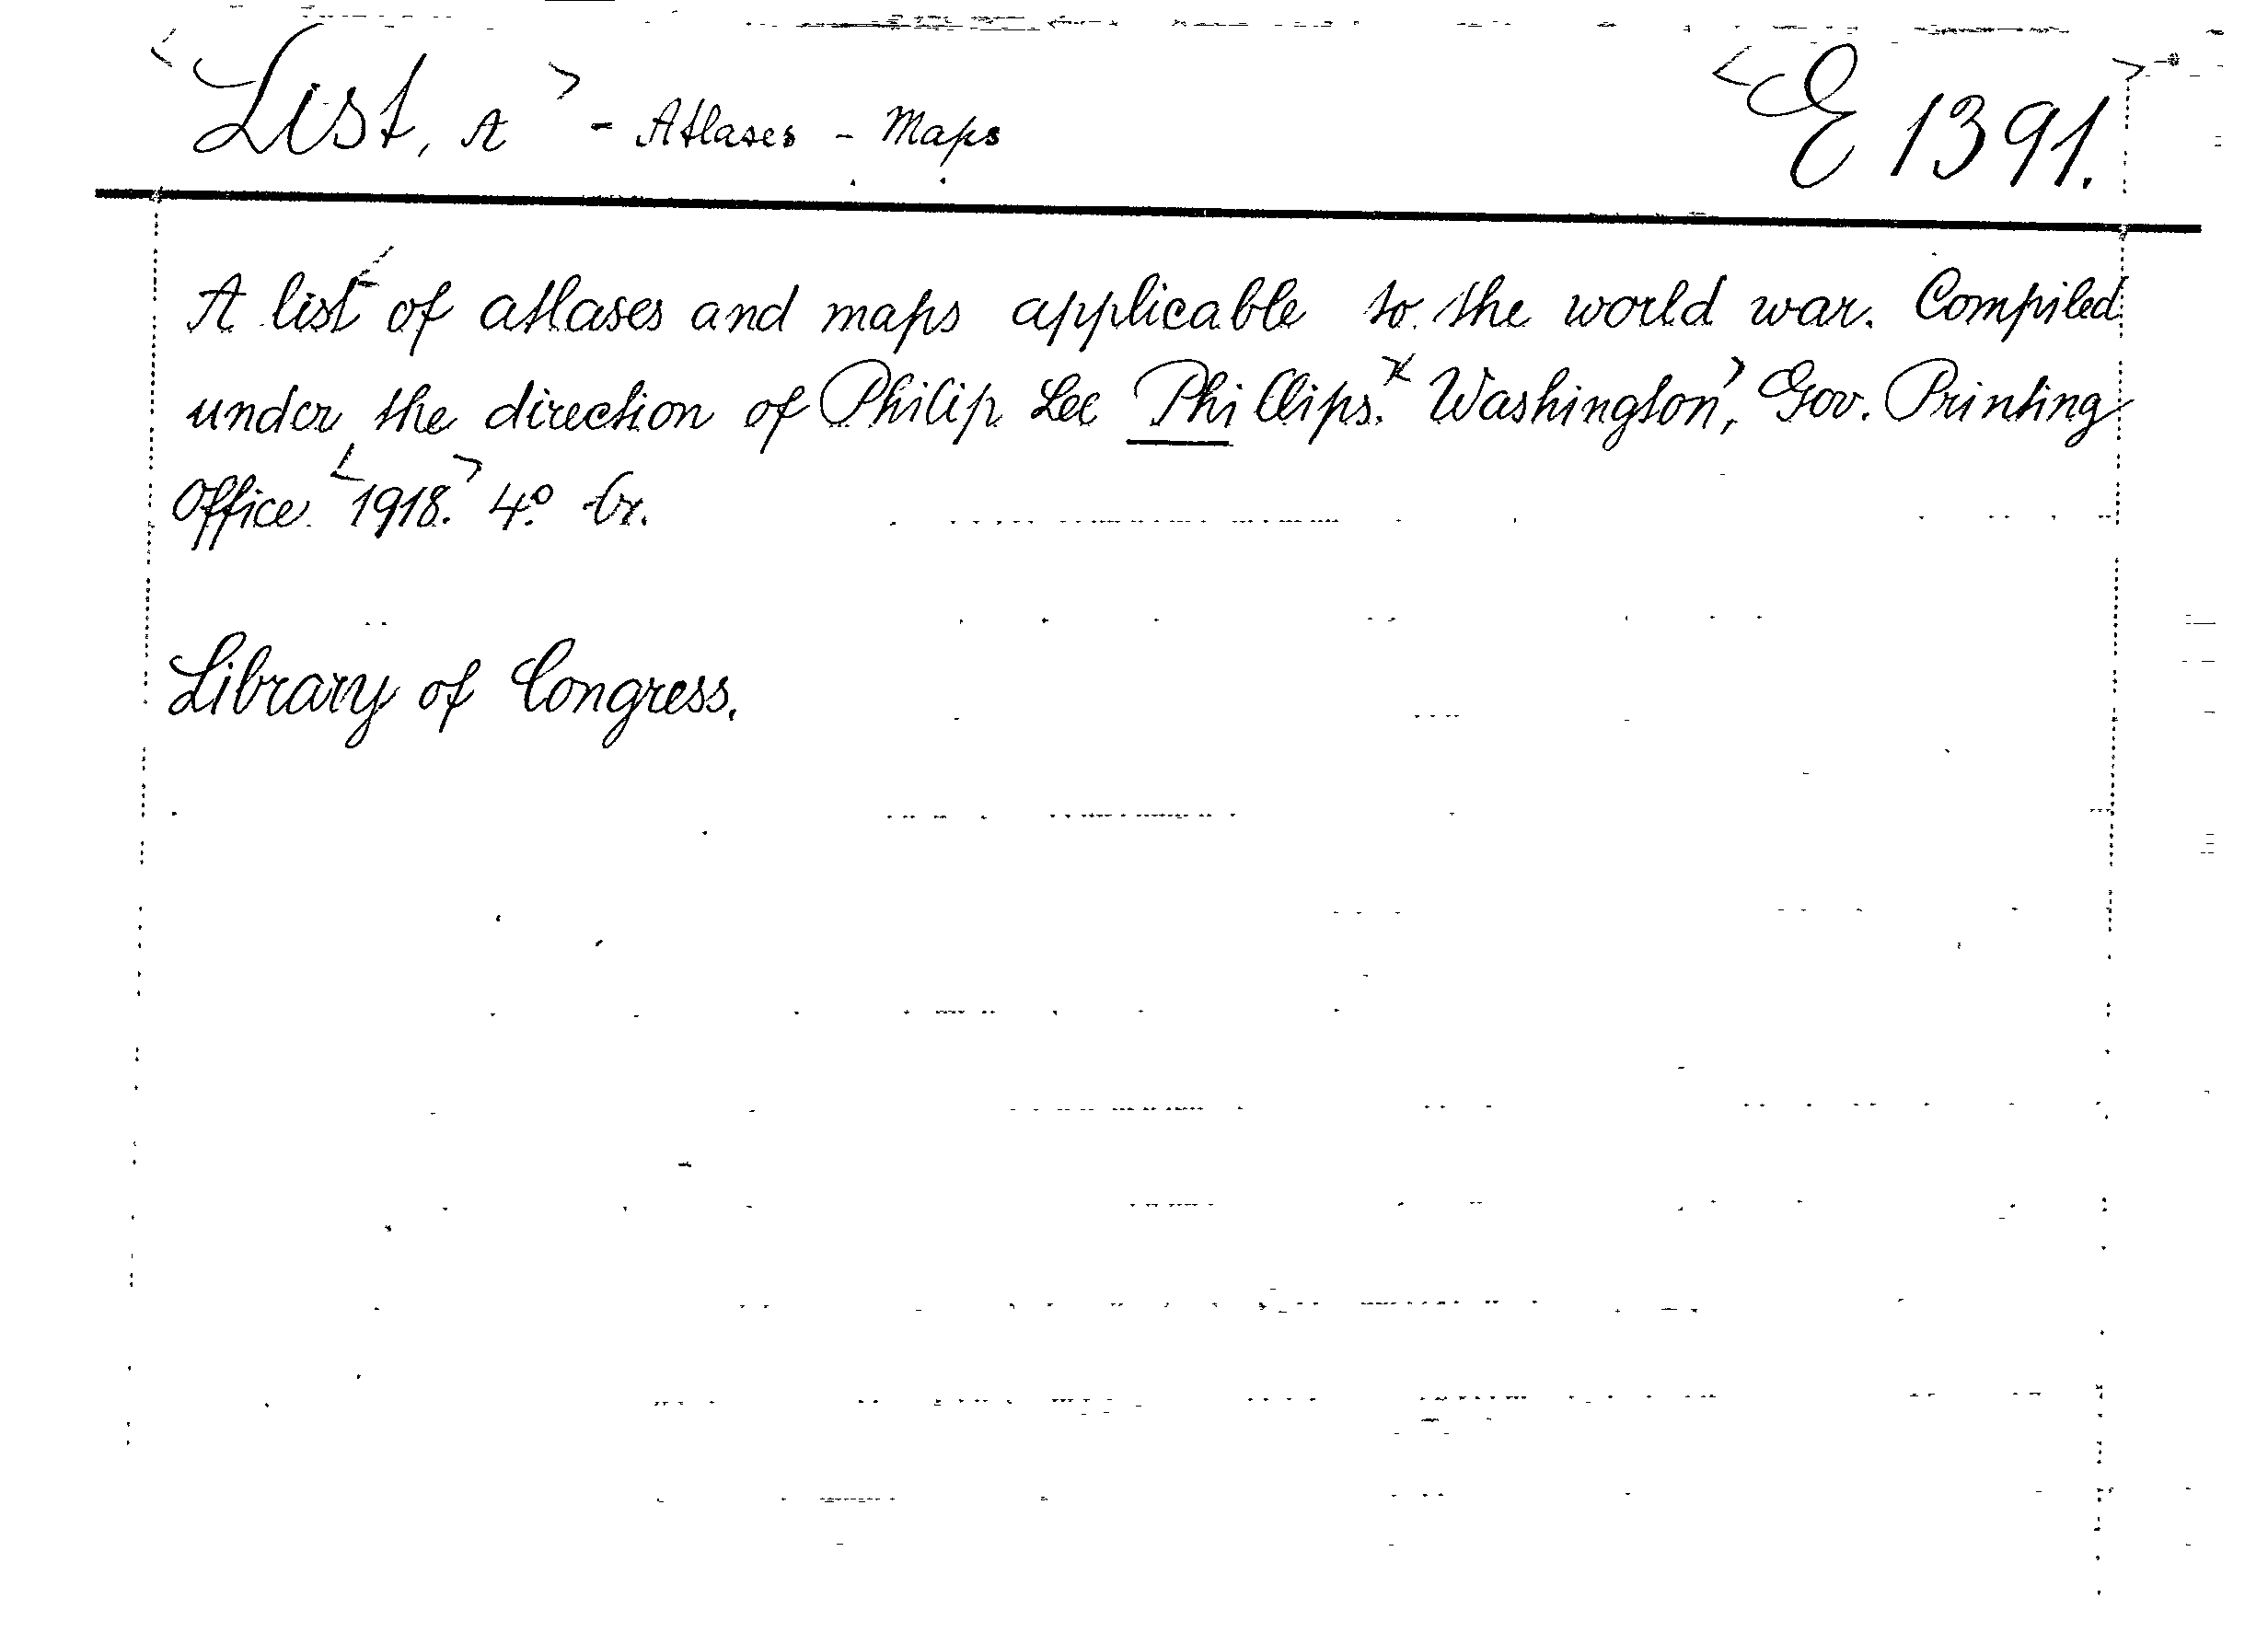 List, A - Atlases - Maps
E 1391.
A list of atlases and maps applicable to the world war. Compiled
under the direction of Philip Lee Phillips. Washington, Gov. Printing
Office 1918. 4° br.
Library of Congress.